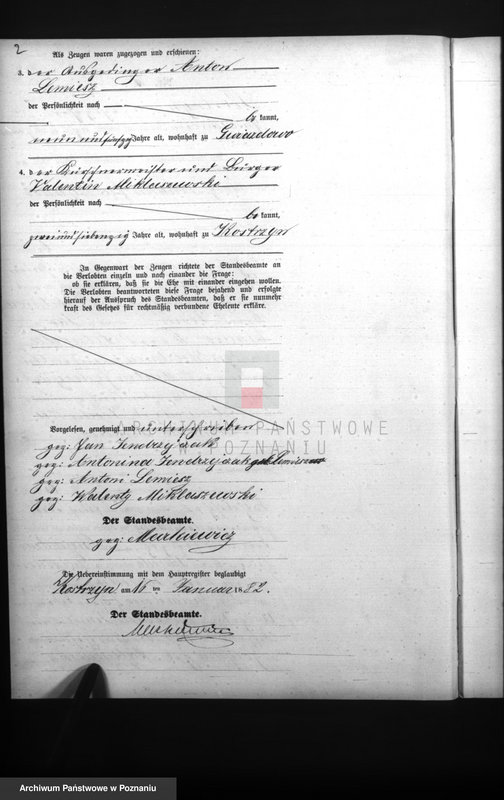 2
Als Zeugen waren zugezogen und erschienen:
3. der Ausgedinger Anton
Lemiesz
der Persönlichkeit nach
be kannt,
neunundfünfzig Jahre alt, wohnhaft zu Gwiazdowo
4. der Kürschnermeister und Bürger
Valentin Miklaszewski
der Persönlichkeit nach
be kannt,
zweiundsiebenzig Jahre alt, wohnhaft zu Kostrzyn
In Gegenwart der Zeugen richtete der Standesbeamte an
die Verlobten einzeln und nach einander die Frage:
ob sie erklären, daß sie die Ehe mit einander eingehen wollen.
Die Verlobten beantworteten diese Frage bejahend und erfolgte
hierauf der Ausspruch des Standesbeamten, daß er sie nunmehr
kraft des Gesetzes für rechtmäßig verbundene Eheleute erkläre.
Vorgelesen, genehmigt und unterschrieben
ARCHIWUM PAŃSTWOWE
W POZNANIU
gez: Jan Jendrzyczak
gez: Antonina Jendrzyczak
gez: Antoni Lemiesz
gez: Walenty Miklaszewski
Der Standesbeamte.
gez: Markiewicz
Die Uebereinstimmung mit dem Hauptregister beglaubigt
Kostrzyn am 16 ten Januar 1882.
Der Standesbeamte.
Archiwum Państwowe w Poznaniu